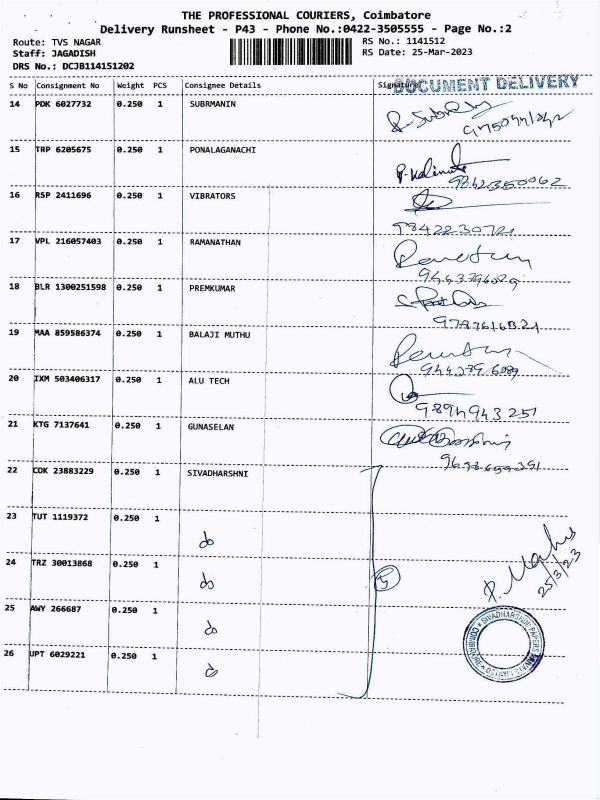 THE PROFESSIONAL COURIERS, Coimbatore
Delivery Runsheet - P43 - Phone No.:0422-3505555 - Page No.:2
Route: TVS NAGAR
Staff: JAGADISH
DRS No.: DCJB114151202
RS No.: 1141512
RS Date: 25-Mar-2023
S No Consignment No Weight PCS Consignee Details Signature
DOCUMENT DELIVERY
14 PDK 6027732 0.250 1 SUBRMANIN
15 TRP 6205675 0.250 1 PONALAGANACHI
9842350062
16 RSP 2411696 0.250 1 VIBRATORS
9842230721
17 VPL 216057403 0.250 1 RAMANATHAN
18 BLR 1300251598 0.250 1 PREMKUMAR
19 MAA 859586374 0.250 1 BALAJI MUTHU
20 IXM 503406317 0.250 1 ALU TECH
9894943251
21 KTG 7137641 0.250 1 GUNASELAN
22 COK 23883229 0.250 1 SIVADHARSHNI
23 TUT 1119372 0.250 1 do
24 TRZ 30013868 0.250 1 do
5
25/3/23
25 AWY 266687 0.250 1 do
26 UPT 6029221 0.250 1 do
SIVADHARSHINI PAPERS PRIVATE LIMITED * COIMBATORE *